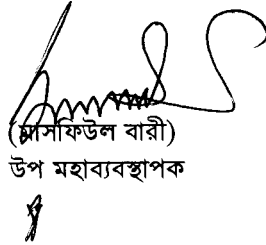 (মাসফিউল বারী)
উপ মহাব্যবস্থাপক